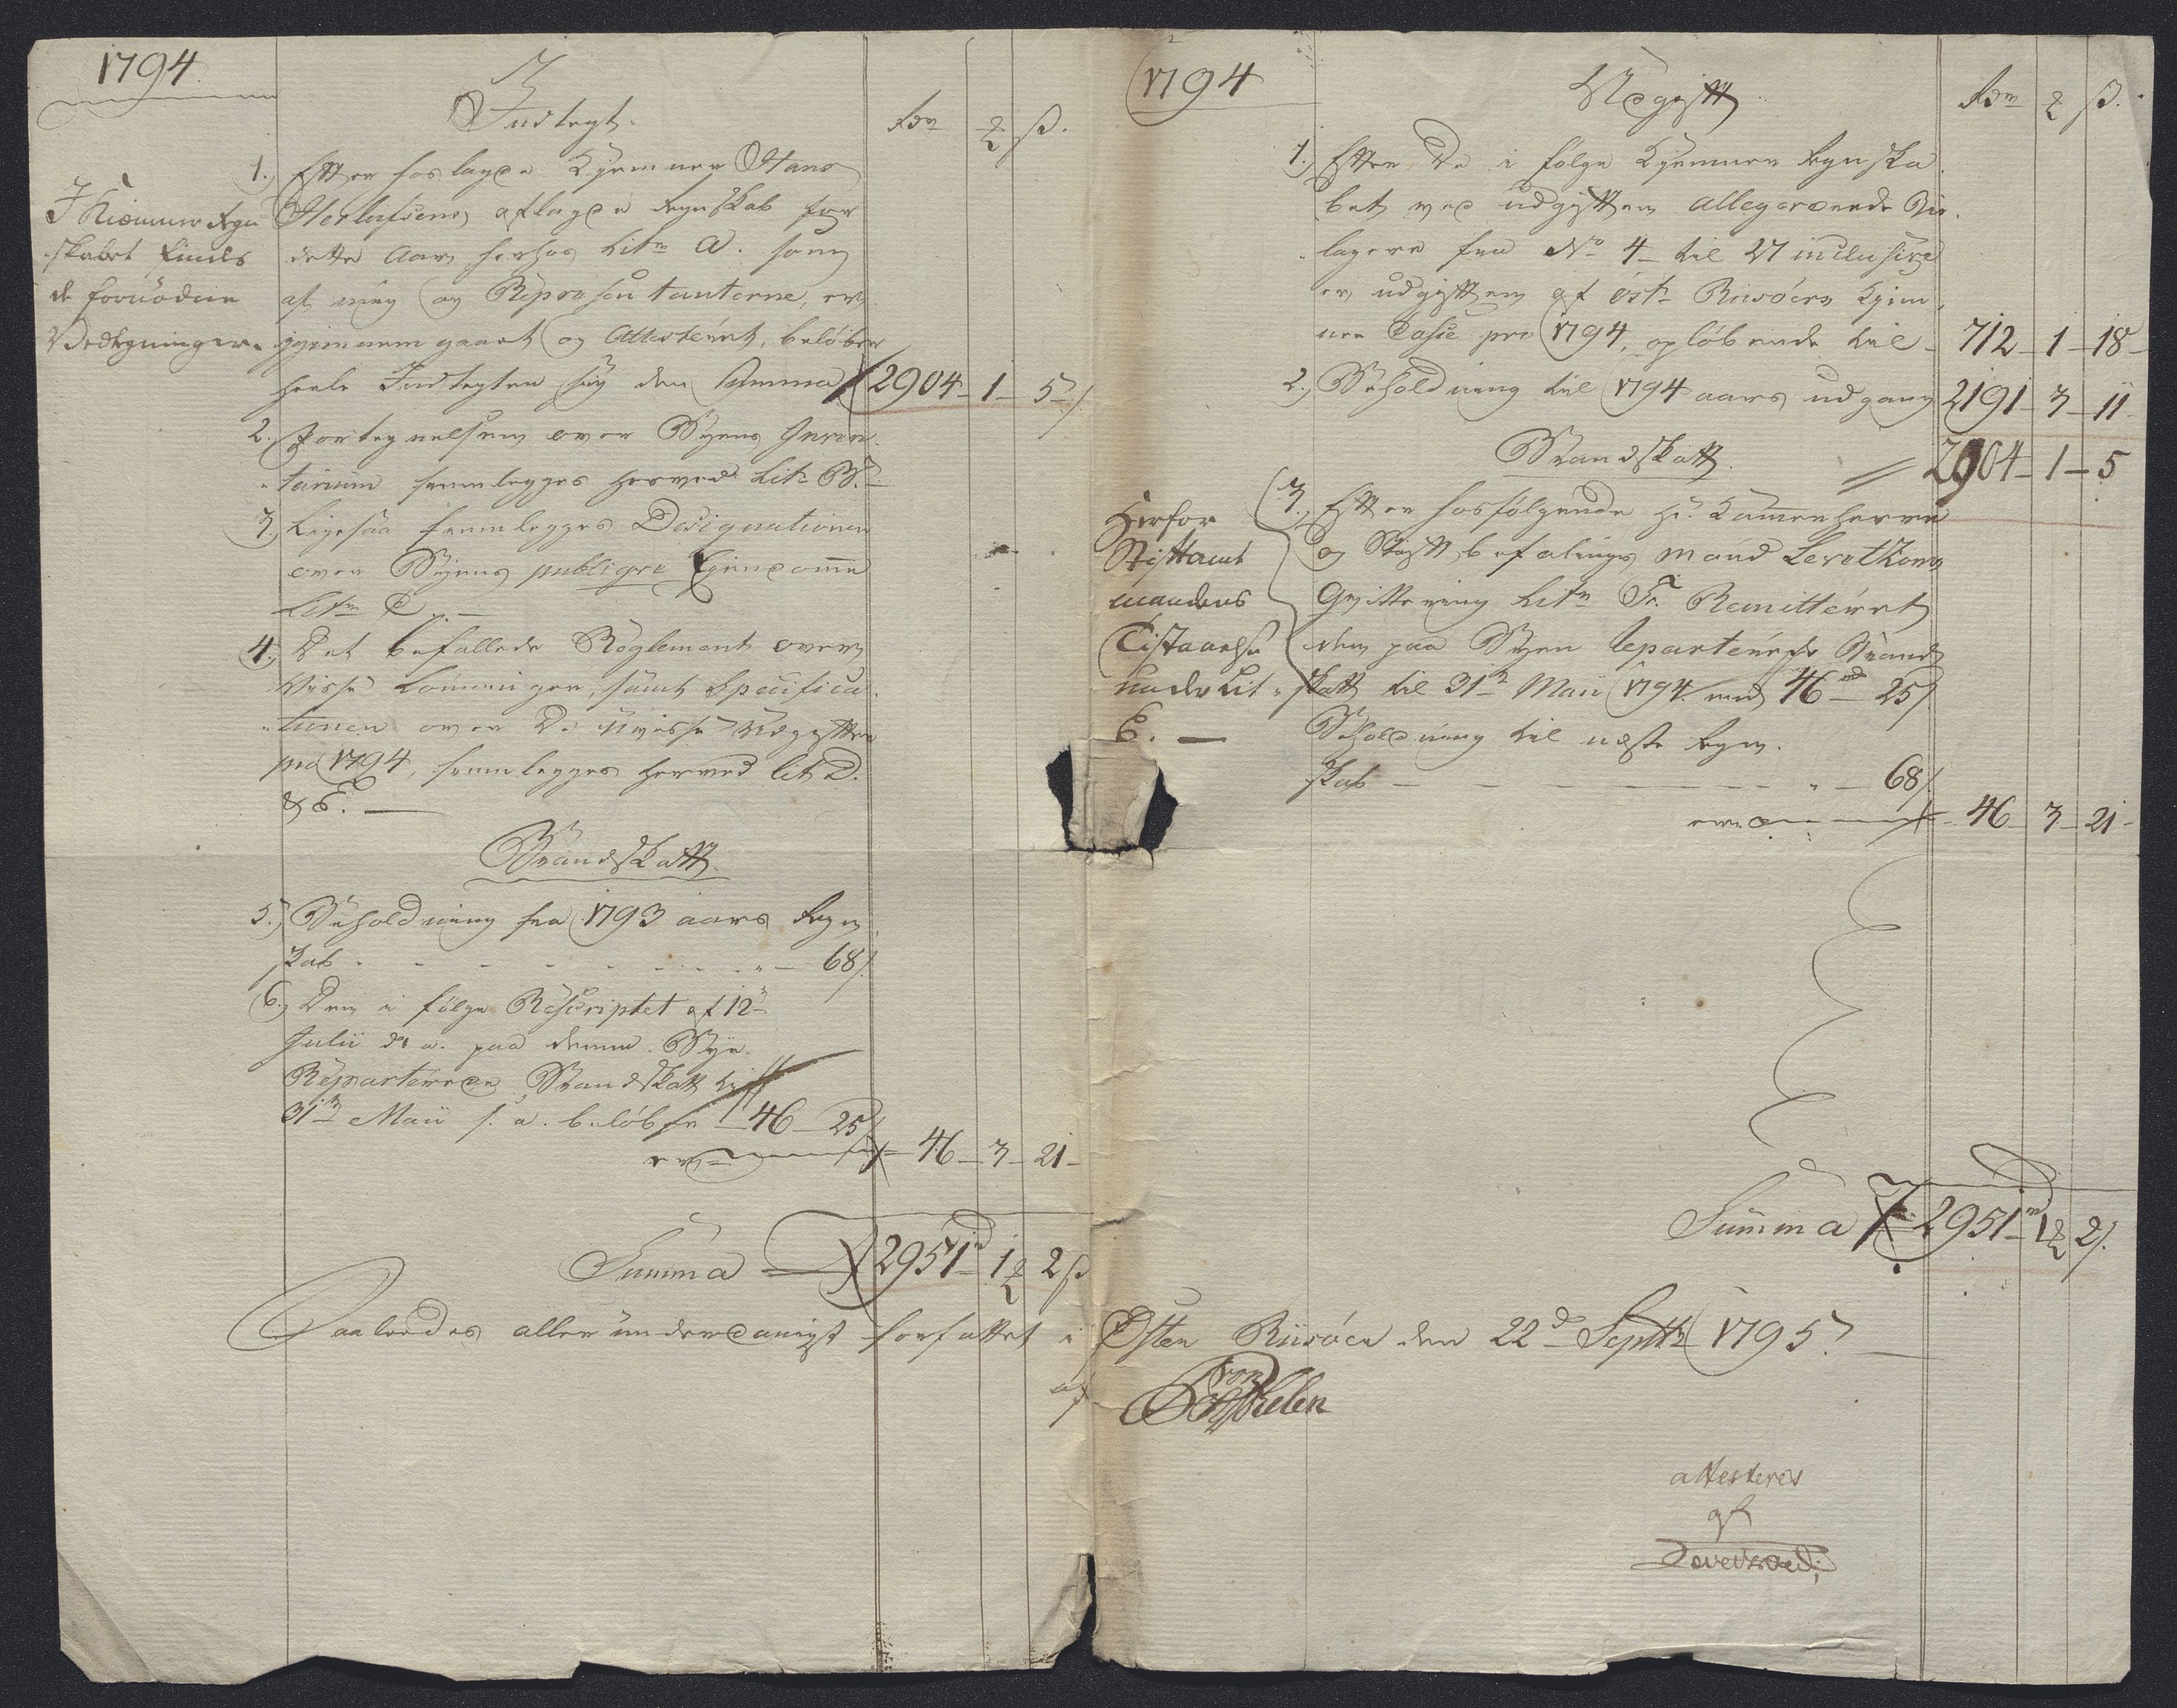 1794
Indtegt.
Rdr ꝝ ß.
1. Efter hoslagde Kjemner Hans
Herlufsens aflagde Regnskab for
dette Aar, herhos Litr A. som
af mig og Repræsentanterne, er
gjennemgaaet og Attesteret, beløber
heele Indtegten sig den Summa 2904 - 1 - 5
I Kiemner Regn
skabet findes
de fornødne
Vedtegninger.
2. Fortegnelsen over Byens Inven
tarium fremlegges herved Litr B.
3. Ligesaa fremlegges Designationen
over Byens publique Ejendomme
Litr C. —
4. Det befallede Reglement over
visse Lønninger, samt Specifica
tionen over De uvisse Udgifter
pro 1794, fremlegges herved Lit D.
& E. —
Brandskatt.
5. Beholdning fra 1793 aars Regn
skab - - - - - - - " — 68 ß
6. Den i følge Rescriptet af 12te
Julii d. a. paa denne Bye
Reparterede Brandskatt til
31te Maii s. a. beløbe — 46 — 25 ß
er 46 - 3 - 21 -
Summa 2951 rd 1 ꝝ 2 ß
1794
Udgift
Rdr ꝝ ß.
1. Efter De i følge Kjemner Regnska
bet ved udgiften allegerende Bi
lagere fra No 4 til 27 inclusive
er udgiften af østr Riisøers Kjem
ner Casse pro 1794, opløbende til - 712 - 1 - 18 -
2. Beholdning til 1794 aars udgang 2191 - 3 - 11 -
2904 - 1 - 5
Brandskatt.
3. Efter hosfølgende Hr. Kammerherre
og Stiftbefalings mand Levetzows
Qvittering Litr F. Remitteret
den paa Byen Reparterede Brand
skatt til 31te Maii 1794 med 46 rd 25 ß
Herfor
Stiftamt
mandens
Tilstaaelse
under Lit.
E. —
Beholdning til næste Regn.
skab — — — — — " — 68 ß
er 46 - 3 - 21 -
Summa 2951 rd 1 ꝝ 2 ß.
Saaledes allerunderdanigst forfattet i Øster Riisøer den 22de Septbr 1795.
af
von
attesteres
af